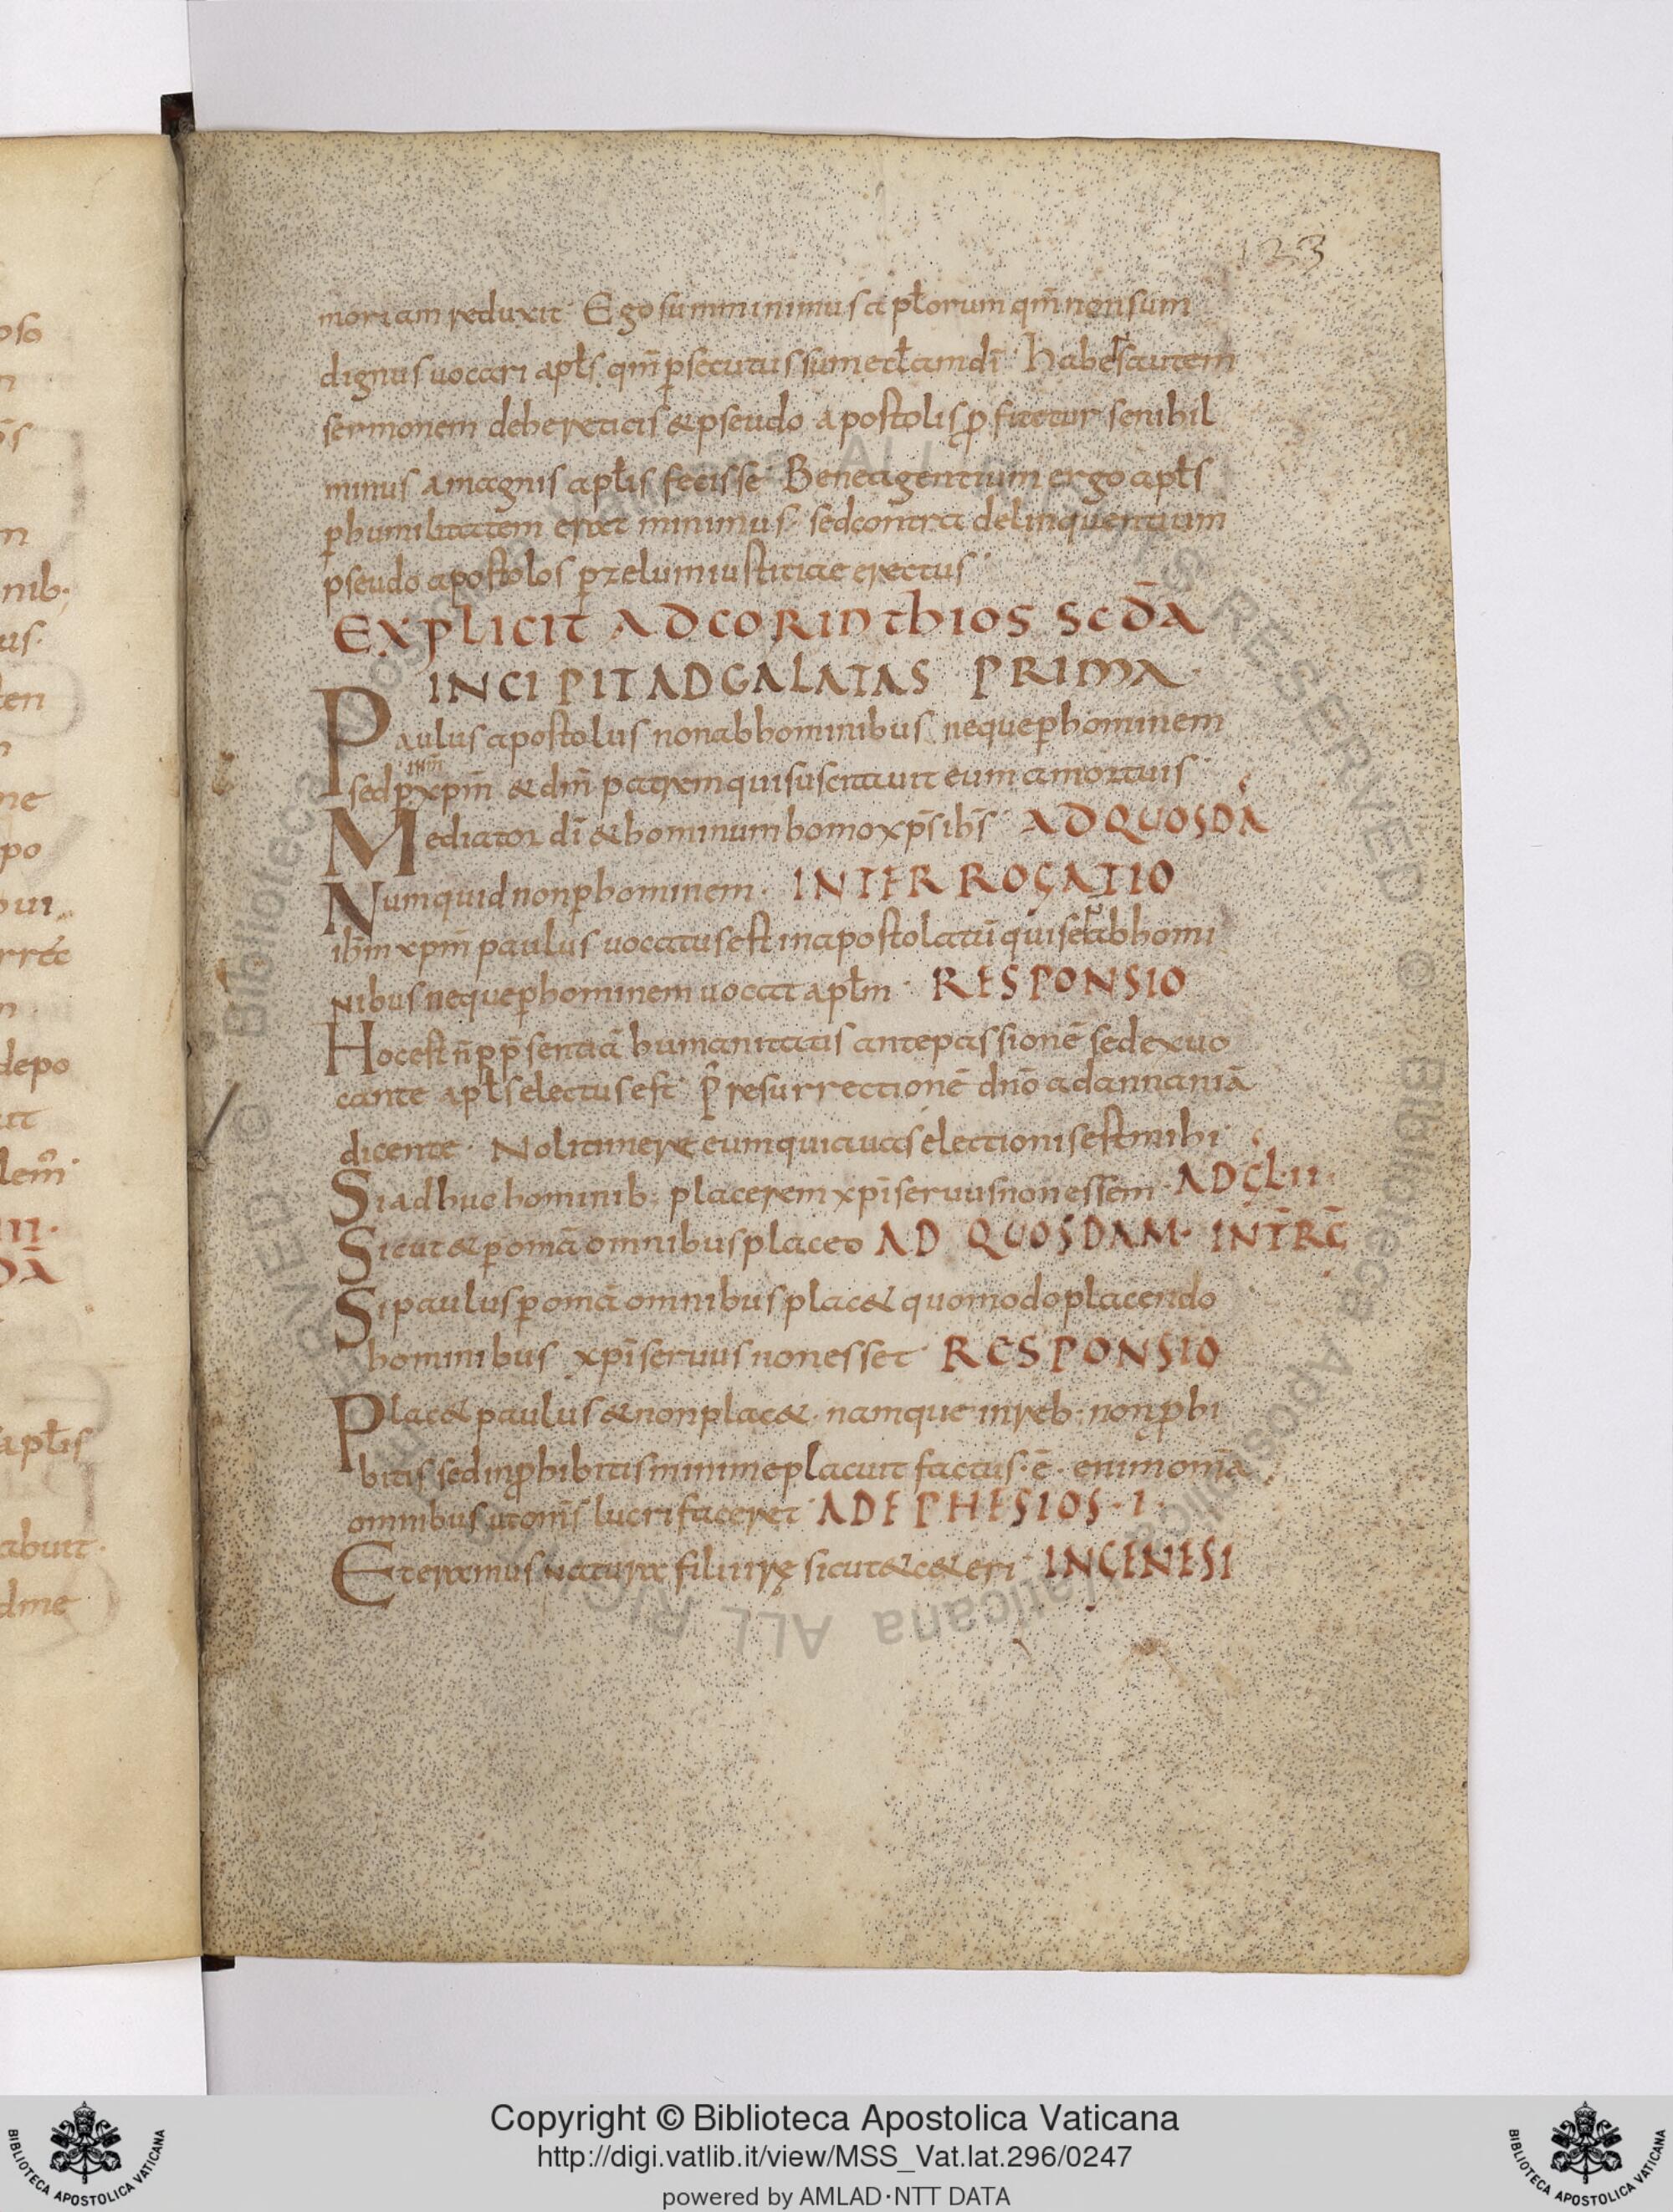 123
moriam reduxit· Ego sum minimus apłorum qm̄ non sum
dignus uocari apłs, qm̄ p̱secutus sum ecłam dī· habens autem
sermonem de hereticis & pseudo apostolis ꝓfitetur se nihil
minus a magnis apłis fecisse· Bene agentium ergo apłs
ꝑ humilitatem erat minimus· sed contra delinquentium
pseudo apostolos ꝑ zelum iustitiae erectus·
EXPLICIT AD CORINTHIOS SCDA̅
INCIPIT AD GALATAS PRIMA·
Paulus apostolus non ab hominibus neque ꝑ hominem
sed ꝑ ihm̄ xpm̄ & dm̄ patrem qui suscitauit eum a mortuis·
Mediator dī & hominum homo xps̄ ihs̄· AD QUOSDĀ
Numquid non ꝑ hominem· INTERROGATIO
ihm̄ xpm̄ paulus uocatus est in apostolatū qui se ab homi
nibus neque ꝑ hominem uocat apłm· RESPONSIO
Hoc est n̄ ꝑ p̄sentiā humanitatis ante passionē sed ex uo
cante apłs electus est· p̄ resurrectionē dn̄o ad annaniā
dicente· Noli timere eum quia uas electionis est mihi·
Si adhuc hominib; placerem xpī seruus non essem· AD C̄L II·
Sicut & ꝑ omā omnibus placeo AD QUOSDAM· INT̄RḠ
Si paulus ꝑ omā omnibus plac& quomodo placendo
hominibus xpī seruus non esset· RESPONSIO
Plac& paulus & non plac&· namque in reb; non ꝓhi
bitis sed in ꝓhibitis minime placuit factus· ē· enim omā
omnibus ut omīs lucrifaceret· AD EPHESIOS· I·
Et eramus natura filii irę sicut & c&eri· IN GENESI
Copyright © Biblioteca Apostolica Vaticana
http://digi.vatlib.it/view/MSS_Vat.lat.296/0247
powered by AMLAD·NTT DATA
BIBLIOTECA APOSTOLICA VATICANA
BIBLIOTECA APOSTOLICA VATICANA